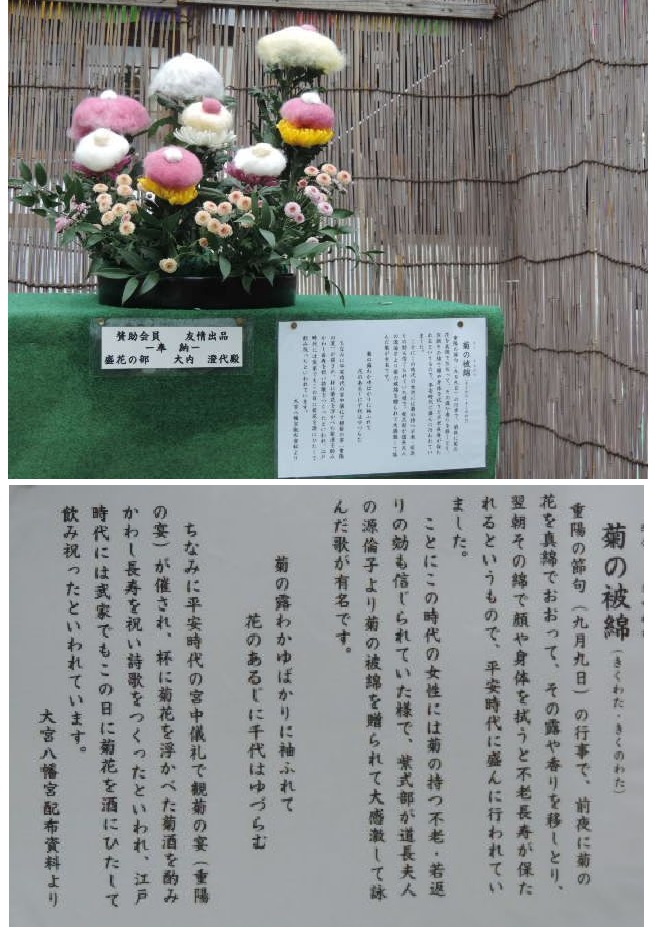 賛助会員　友情出品
―奉　納―
盛花の部　大内　澄代殿
菊の被綿
菊の被綿（きくわた・きくのわた）
重陽の節句（九月九日）の行事で、前夜に菊の
花を真綿でおおって、その露や香りを移しとり、
翌朝その綿で顔や身体を拭うと不老長寿が保た
れるというもので、平安時代に盛んに行われてい
ました。
ことにこの時代の女性には菊の持つ不老・若返
りの効も信じられていた様で、紫式部が道長夫人
の源倫子より菊の被綿を贈られて大感激して詠
んだ歌が有名です。
菊の露わかゆばかりに袖ふれて
花のあるじに千代はゆづらむ
ちなみに平安時代の宮中儀礼で観菊の宴（重陽
の宴）が催され、杯に菊花を浮かべた菊酒を酌み
かわし長寿を祝い詩歌をつくったといわれ、江戸
時代には武家でもこの日に菊花を酒にひたして
飲み祝ったといわれています。
大宮八幡宮配布資料より